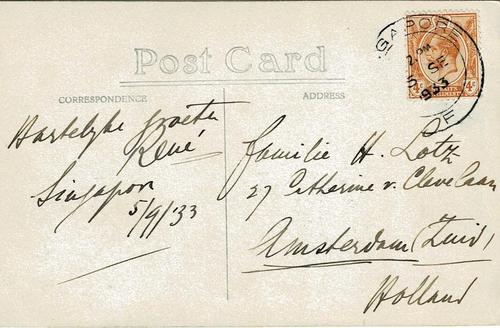 Post Card
CORRESPONDENCE
ADDRESS
Hartelyke groeten
René
Singapore
5/9/'33
Familie H. Lotz
27 Catharine v. Clevelaan
Amsterdam (Zuid)
Holland
SINGAPORE
2 PM
5 SE
1933
4c 4c